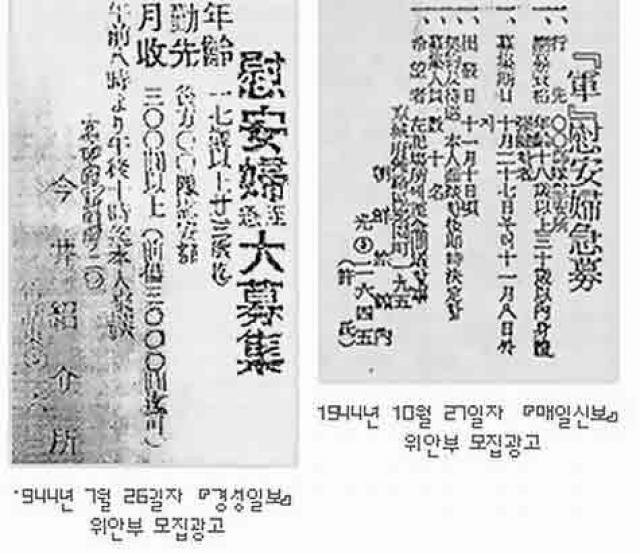 慰安婦至急大募集
年齢 一七歳以上廿三歳迄
勤先 後方〇〇隊慰安部
月收 三〇〇圓以上（前借三〇〇〇圓迄可）
午前八時より午後十時迄本人來談
今井紹介所
'944년 7월 26일자 『경성일보』
위안부 모집광고
『軍』慰安婦急募
一、行先 〇〇部隊慰安所
一、應募資格 年齢十八歳以上三十歳以内身體強健者
一、募集期日 十月二十七日부터十一月八日까지
一、出發日 十一月十日頃
一、契約及待遇 本人面談後即時決定함
一、募集人員 數十名
一、希望者 左記場所에至急問議할事
京城府鍾路區樂園町一九五
朝鮮旅館内
光③二六四五
（許氏）
1944년 10월 27일자 『매일신보』
위안부 모집광고